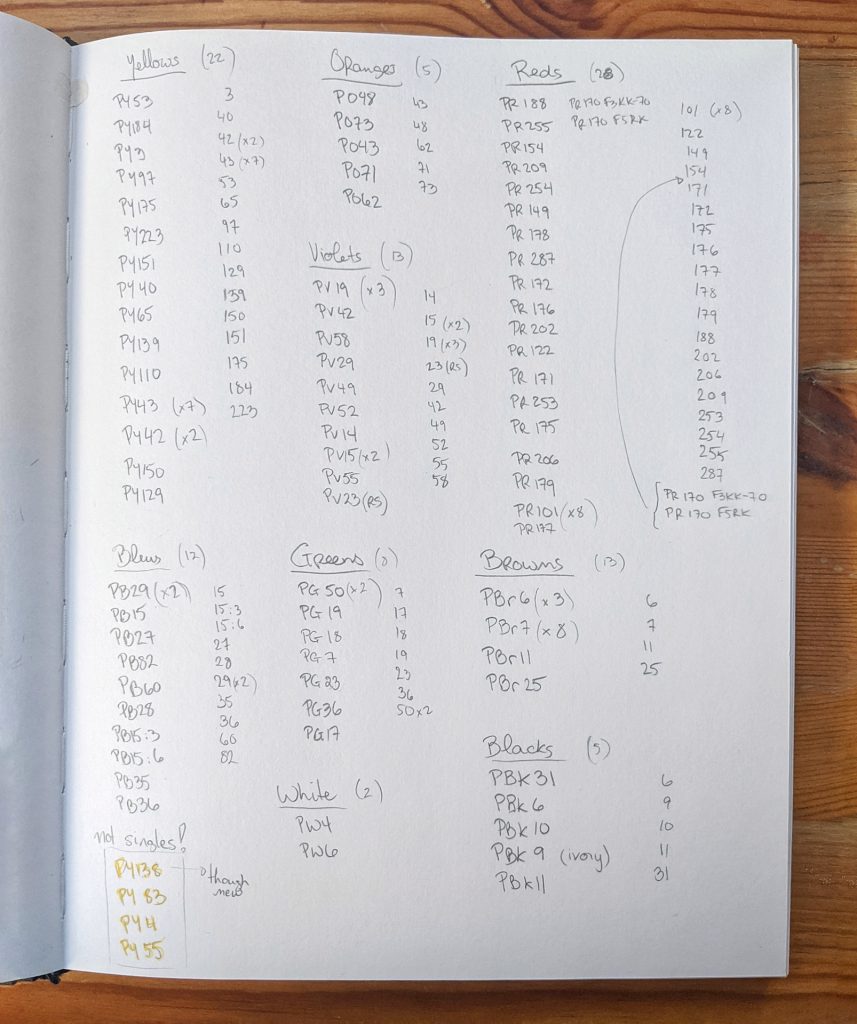 Yellows (22)
PY53
PY184
PY3
PY97
PY175
PY223
PY151
PY40
PY65
PY139
PY110
PY43 (x7)
PY42 (x2)
PY150
PY129
3
40
42 (x2)
43 (x7)
53
65
97
110
129
139
150
151
175
184
223
Oranges (5)
PO48
PO73
PO43
PO71
PO62
43
48
62
71
73
Violets (13)
PV19 (x3)
PV42
PV58
PV29
PV49
PV52
PV14
PV15 (x2)
PV55
PV23 (RS)
14
15 (x2)
19 (x3)
23 (RS)
29
42
49
52
55
58
Reds (28)
PR188 PR170 F3KK-70
PR255 PR170 F5RK
PR154
PR209
PR254
PR149
PR178
PR287
PR172
PR176
PR202
PR122
PR171
PR253
PR175
PR206
PR179
PR101 (x8)
PR177
101 (x8)
122
149
154
171
172
175
176
177
178
179
188
202
206
209
253
254
255
287
PR170 F3KK-70
PR170 F5RK
Blews (12)
PB29 (x2)
PB15
PB27
PB82
PB60
PB28
PB15:3
PB15:6
PB35
PB36
15
15:3
15:6
27
28
29(x2)
35
36
60
82
Greens (8)
PG50 (x2)
PG19
PG18
PG7
PG23
PG36
PG17
7
17
18
19
23
36
50x2
Browns (13)
PBr6 (x3)
PBr7 (x8)
PBr11
PBr25
6
7
11
25
White (2)
PW4
PW6
Blacks (5)
PBk31
PBk6
PBk10
PBk9 (ivory)
PBk11
6
9
10
11
31
not singles!
PY138
PY83
PY4
PY55
though
new